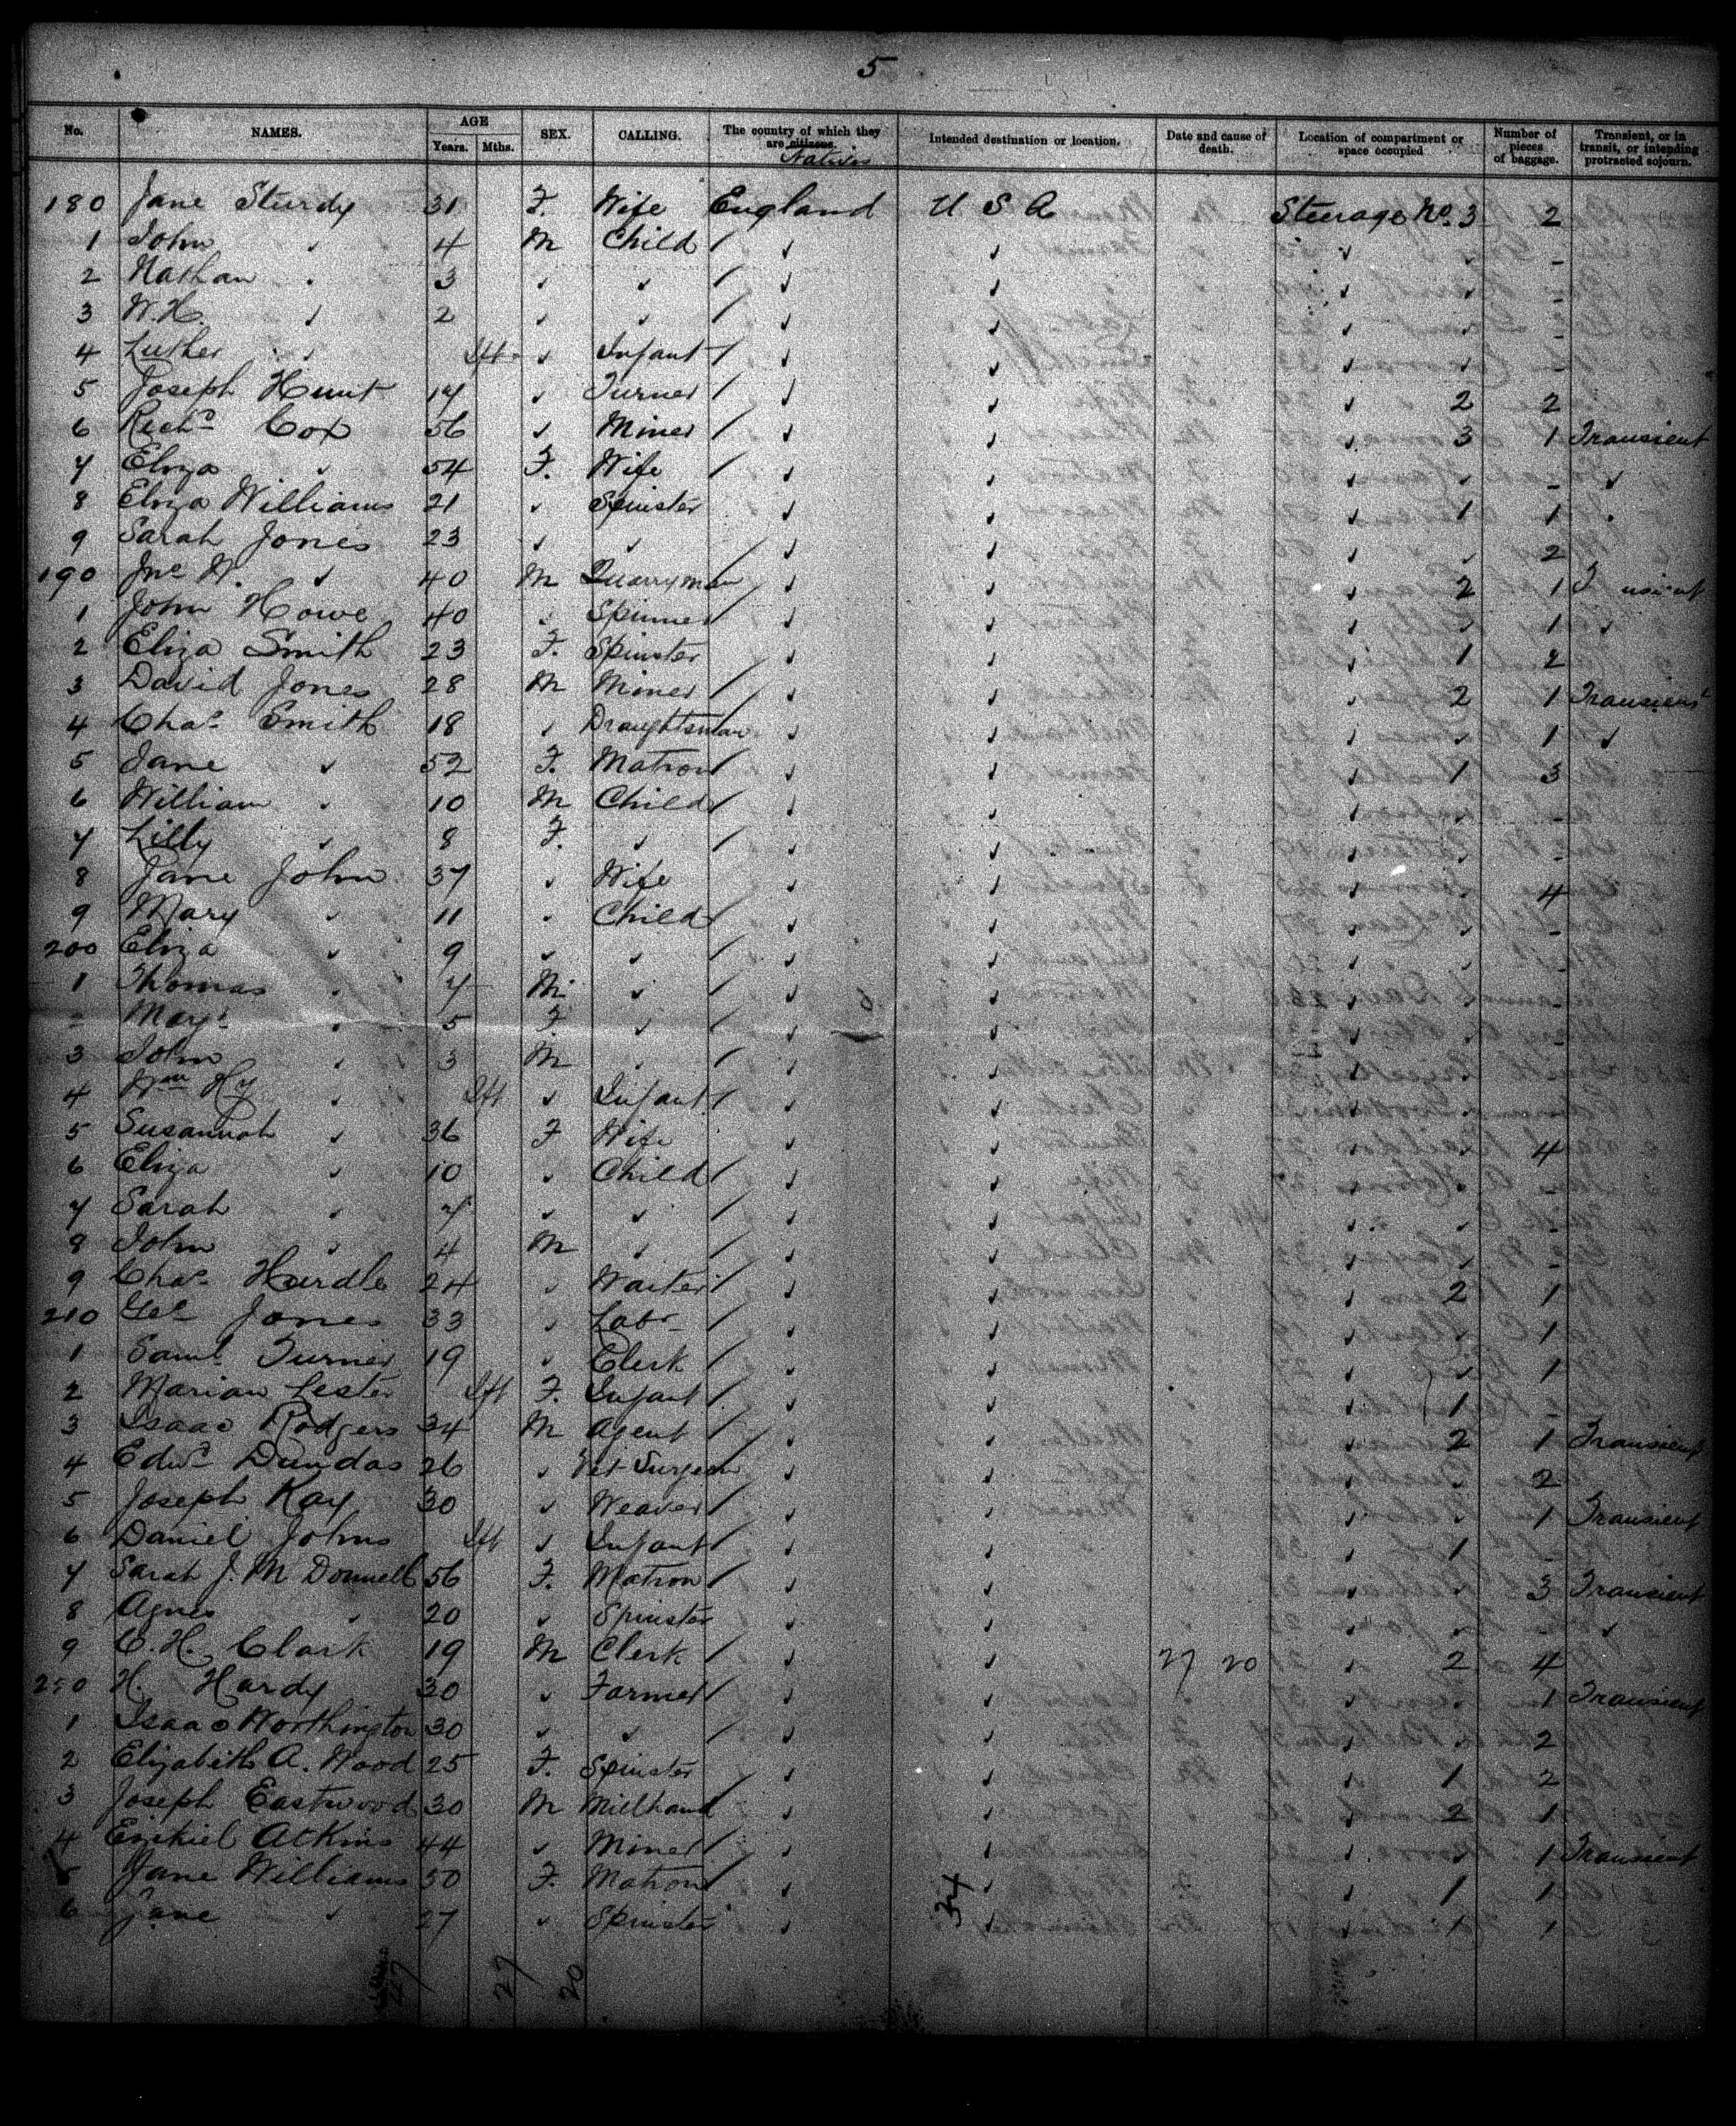 5
No. NAMES. AGE Years. Mths. SEX. CALLING. The country of which they are citizens. Natives Intended destination or location. Date and cause of death. Location of compartment or space occupied Number of pieces of baggage. Transient, or in transit, or intending protracted sojourn.
180 Jane Sturdy 31 F. Wife England U S A Steerage No. 3 2
1 John ✓ 4 M Child / ✓ ✓ ✓ ✓ -
2 Nathan ✓ 3 ✓ ✓ / ✓ ✓ ✓ ✓ -
3 W.H. ✓ 2 ✓ ✓ / ✓ ✓ ✓ ✓ -
4 Luther ✓ Ift ✓ Infant / ✓ ✓ ✓ ✓ -
5 Joseph Hunt 17 ✓ Turner / ✓ ✓ ✓ 2 2
6 Richd Cox 56 ✓ Miner / ✓ ✓ ✓ 3 1 Transient
7 Eliza ✓ 54 F. Wife / ✓ ✓ ✓ ✓ - ✓
8 Eliza Williams 21 ✓ Spinster ✓ ✓ ✓ 1 1 ✓
9 Sarah Jones 23 ✓ ✓ ✓ ✓ ✓ ✓ 2
190 Jno W. ✓ 40 M Quarryman ✓ ✓ ✓ 2 1
1 John Howe 40 ✓ Spinner / ✓ ✓ ✓ ✓ 1 ✓
2 Eliza Smith 23 F. Spinster ✓ ✓ ✓ 1 2
3 David Jones 28 M Miner / ✓ ✓ ✓ 2 1 Transient
4 Chas Smith 18 ✓ Draughtsman ✓ ✓ ✓ ✓ 1 ✓
5 Jane ✓ 52 F. Matron / ✓ ✓ ✓ 1 3
6 William ✓ 10 M Child / ✓ ✓ ✓ ✓ -
7 Lilly ✓ 8 F. ✓ / ✓ ✓ ✓ ✓ -
8 Jane John 37 ✓ Wife ✓ ✓ ✓ ✓ 4
9 Mary ✓ 11 ✓ Child / ✓ ✓ ✓ ✓ -
200 Eliza ✓ 9 ✓ ✓ / ✓ ✓ ✓ ✓ -
1 Thomas ✓ 7 M ✓ / ✓ ✓ ✓ ✓ -
2 Mary ✓ 5 F. ✓ / ✓ ✓ ✓ ✓ -
3 John ✓ 3 M ✓ / ✓ ✓ ✓ ✓ -
4 Wm Hy ✓ Ift ✓ Infant / ✓ ✓ ✓ ✓ -
5 Susannah ✓ 36 F Wife ✓ ✓ ✓ ✓ 4
6 Eliza ✓ 10 ✓ Child / ✓ ✓ ✓ ✓ -
7 Sarah ✓ 7 ✓ ✓ / ✓ ✓ ✓ ✓ -
8 John ✓ 4 M ✓ / ✓ ✓ ✓ ✓ -
9 Chas Hurdle 24 ✓ Waiter / ✓ ✓ ✓ 2 1
210 Geo Jones 33 ✓ Labr / ✓ ✓ ✓ ✓ 1
1 Saml Turner 19 ✓ Clerk / ✓ ✓ ✓ ✓ 1
2 Marian Lester Ift F. Infant / ✓ ✓ ✓ 1 -
3 Isaac Rodgers 34 M Agent / ✓ ✓ ✓ 2 1 Transient
4 Edwd Dundas 26 ✓ Vet Surgeon ✓ ✓ ✓ ✓ 2
5 Joseph Kay 30 ✓ Weaver / ✓ ✓ ✓ ✓ 1 Transient
6 Daniel Johns Ift ✓ Infant / ✓ ✓ ✓ 1 -
7 Sarah J. McDonnell 56 F. Matron / ✓ ✓ ✓ ✓ 3 Transient
8 Agnes ✓ 20 ✓ Spinster ✓ ✓ ✓ ✓ - ✓
9 C.H. Clark 19 M Clerk / ✓ ✓ 27 20 ✓ 2 4
220 H. Hardy 30 ✓ Farmer / ✓ ✓ ✓ ✓ 1 Transient
1 Isaac Worthington 30 ✓ ✓ / ✓ ✓ ✓ ✓ 2
2 Elizabeth A. Wood 25 F. Spinster ✓ ✓ ✓ 1 2
3 Joseph Eastwood 30 M Millhand ✓ ✓ ✓ 2 1
4 Ezekiel Atkins 44 ✓ Miner / ✓ ✓ ✓ ✓ 1 Transient
5 Jane Williams 50 F. Matron / ✓ ✓ ✓ 1 1
6 Jane ✓ 27 ✓ Spinster ✓ ✓ ✓ 1 1
34
227 27 20